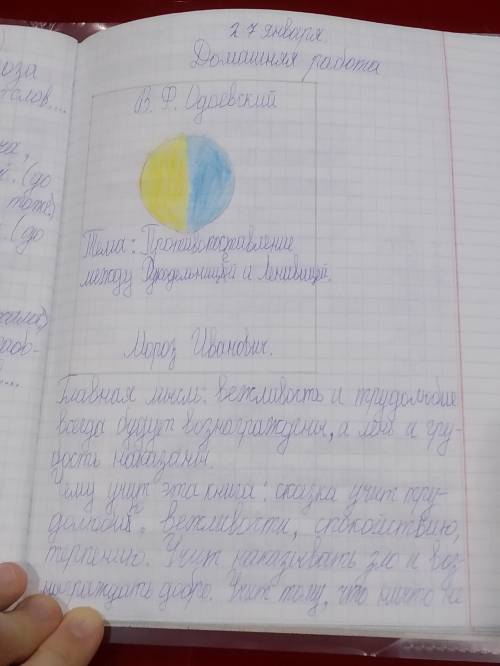 27 января.
Домашняя работа
В. Ф. Одоевский
Тема: Противопоставление
между Рукодельницей и Ленивицей.
Мороз Иванович.
Главная мысль: вежливость и трудолюбие
всегда будут вознаграждены, а лень и гру-
дость наказаны.
Чему учит эта книга: сказка учит тру-
долюбию, вежливости, спокойствию,
терпению. Учит наказывать зло и воз-
награждать добро. Учит тому, что ничто не
оза
слов...
ча,
й. (до
тоже)
. (до